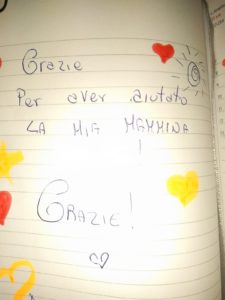 Grazie
Per aver aiutato
LA MIA MAMMINA
!
GRAZIE!